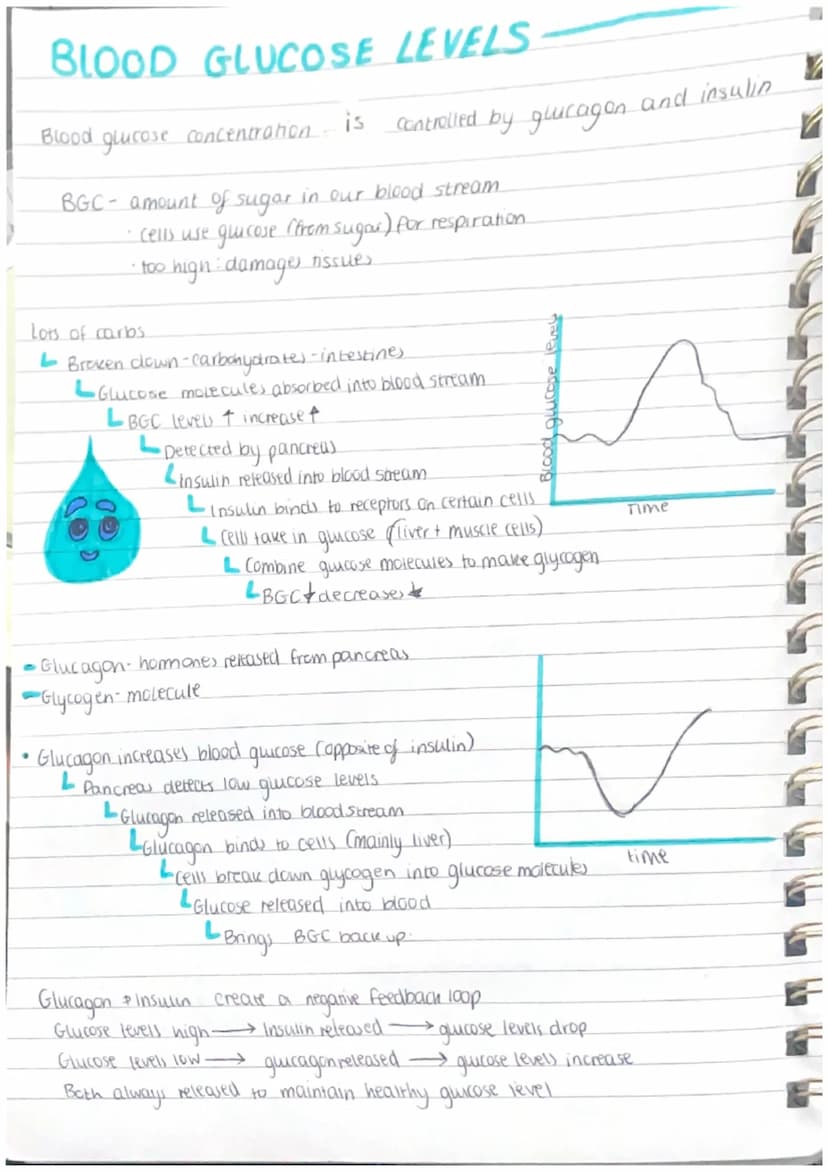 BLOOD GLUCOSE LEVELS
Blood glucose concentration is controlled by glucagon and insulin
BGC - amount of sugar in our blood stream
· cells use glucose (from sugar) for respiration
· too high : damages tissues
Lots of carbs
Broken down - carbohydrates - intestines
Glucose molecules absorbed into blood stream
BGC levels ↑ increase ↑
Detected by pancreas
Insulin released into blood stream
Insulin binds to receptors on certain cells
Cells take in glucose (liver + muscle cells)
Combine glucose molecules to make glycogen
BGC ↓ decreases ↓
Blood glucose levels
Time
- Glucagon - hormones released from pancreas
- Glycogen - molecule
• Glucagon increases blood glucose (opposite of insulin)
Pancreas detects low glucose levels
Glucagon released into bloodstream
Glucagon binds to cells (mainly liver)
Cells break down glycogen into glucose molecules
Glucose released into blood
Brings BGC back up.
time
Glucagon + Insulin create a negative feedback loop
Glucose levels high → Insulin released → glucose levels drop
Glucose levels low → glucagon released → glucose levels increase
Both always released to maintain healthy glucose level